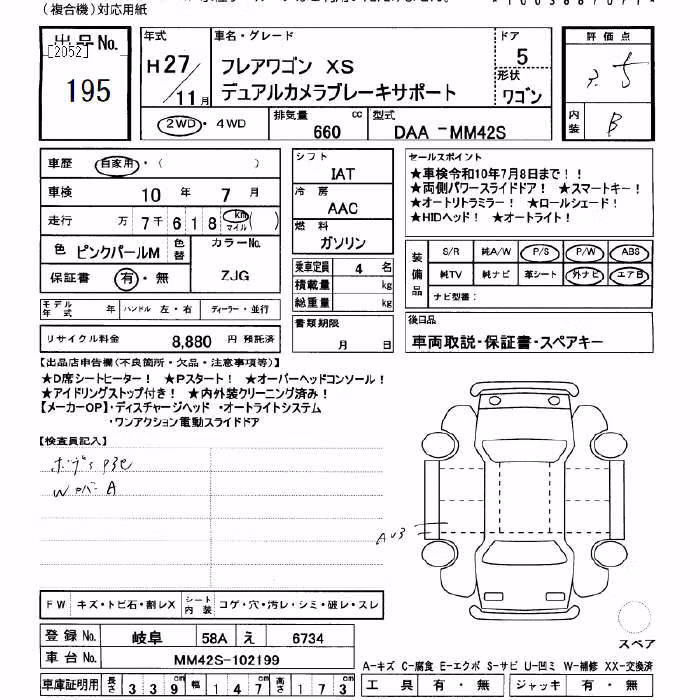 (複合機)対応用紙
出品No.
[2052]
195
年式
H27/11月
車名・グレード
フレアワゴン XS
デュアルカメラブレーキサポート
ドア
5
形状
ワゴン
評価点
5
内装
B
2WD・4WD
排気量 660 cc
型式 DAA-MM42S
車歴 自家用・( )
車検 10年 7月
走行 万 7千 6 1 8 km マイル ( )
色 ピンクパールM
色替
カラーNo. ZJG
保証書 有・無
シフト
IAT
冷房
AAC
燃料
ガソリン
乗車定員 4 名
積載量 kg
総重量 kg
セールスポイント
★車検令和10年7月8日まで!!
★両側パワースライドドア! ★スマートキー!
★オートリトラミラー! ★ロールシェード!
★HIDヘッド! ★オートライト!
装備品
S/R 純A/W P/S P/W ABS
純TV 純ナビ 革シート 外ナビ エアB
ナビ型番:
モデル年式 年 ハンドル 左・右 ディーラー・並行
リサイクル料金 8,880 円 預託済
書類期限
月 日
後日品
車両取説・保証書・スペアキー
【出品店申告欄(不良箇所・欠品・注意事項等)】
★D席シートヒーター! ★Pスタート! ★オーバーヘッドコンソール!
★アイドリングストップ付き! ★内外装クリーニング済み!
【メーカーOP】・ディスチャージヘッド ・オートライトシステム
・ワンアクション電動スライドドア
【検査員記入】
A
FW キズ・トビ石・割レX
シート内装 コゲ・穴・汚レ・シミ・破レ・スレ
登録No. 岐阜 58A え 6734
車台No. MM42S-102199
車庫証明用 長さ 339cm 幅 147cm 高さ 173cm
スペア
A-キズ C-腐食 E-エクボ S-サビ U-凹ミ W-補修 XX-交換済
工具 有・無 ジャッキ 有・無